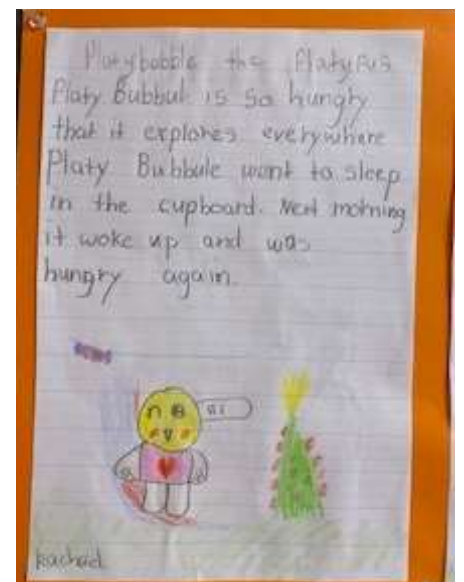 Platybobble the Platypus
Platy Bubbul is so hungry
that it explores everywhere
Platy Bubbule went to sleep
in the cupboard. Next morning
it woke up and was
hungry again.
Hi
Rachael